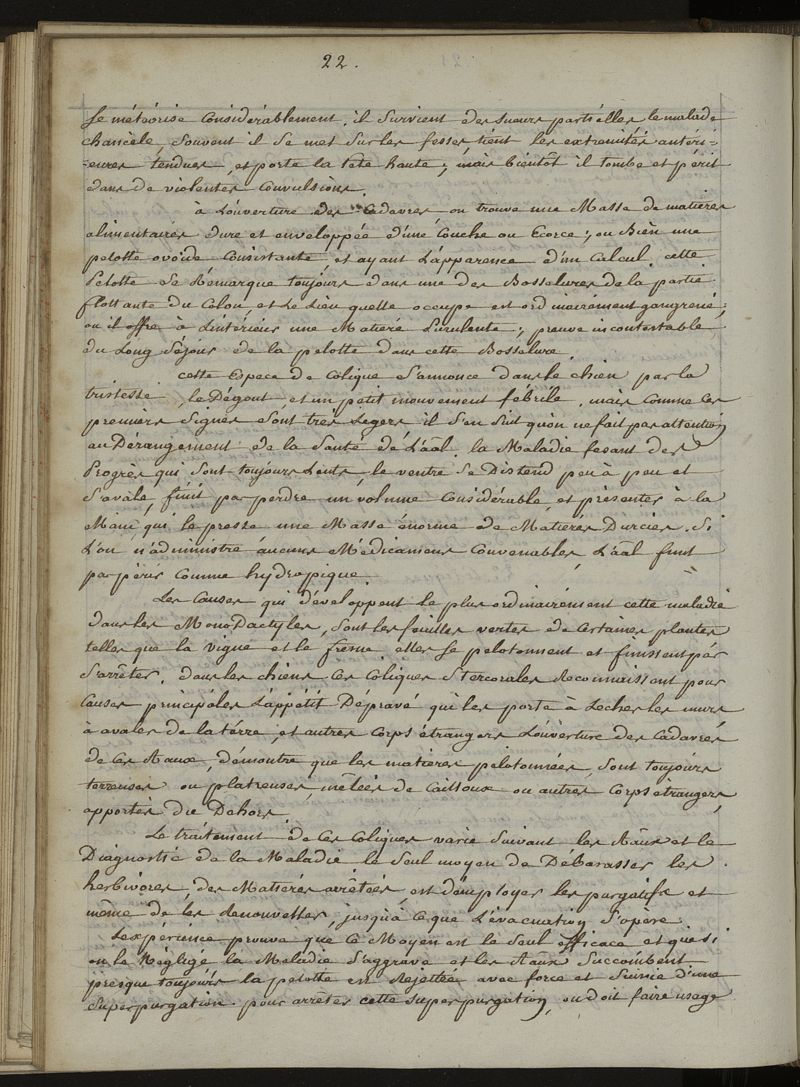 22.
se météorise Considérablement. il Survient des sueurs partiélles le malade
chancèle, Souvent il Se met Sur les fesses tient les extremités antéri-
-eures tendues, et porte la tête haute; mais bientôt il tombe et périt
dans de violentes Convulsions.
à L'ouverture des Cadavres on trouve une Masse de matières
alimentaires dure et enveloppée d'une Couche ou Ecorce; ou Bien une
pelotte ovoïde Consistante, et ayant L'apparence d'un Calcul. cette
Pelotte Se Remarque toujours dans une des Bosselures de la partie
flottante du Colon, et Le Lieu quelle occupe est ordinairement gangrené,
ou il offre à L'intérieur une Matiére Purulente; preuve incontestable
du Long Séjour de la pelotte dans cette Bosselure.
cette Espece de Colique S'annonce dans le chien par la
tristesse, le Dégout, et un petit mouvement fébrile. mais Comme ces
premiers Signes Sont très Legers il S'en Suit qu'on ne fait pas attention
au Dérangement de la Santé de L'aâl. la Maladie fesant des
Progrès qui Sont toujours Lents, le ventre Se Distend peu à peu et
S'avale, finit par perdre un volume Considérable, et présenter à la
Main qui le presse une Masse énorme de Matiéres Durcies. Si
L'on n'administre aucuns Médicamens Convenables, L'aâl finit
par périr Comme hydropique.
Les Causes qui développent le plus ordinairement cette maladie
dans les MonoDactyles, Sont les feuilles vertes de Certaines plantes
telles que la vigne et le frêne. elles Se pelotonnent et finissent par
S'arrêter. dans les chiens Ces Coliques Stercorales Reconnaissent pour
Causes principales L'appétit Dépravé qui les porte à Lecher les murs
à avaler de la térre, et autres Corps étrangers L'ouverture des Cadavres
de Ces Aaux, démontre que les matieres pelotonnées, Sont toujours
terreuses ou platreuses, mêlées de Cailloux ou autres Corps etrangers,
apportés du Dehors.
Le traitement de Ces Coliques varie Suivant les Aaux et le
Diagnostic de la Maladie. le Seul moyen de Débarasser les
herbivores, des Matiéres arrêtées, est d'employer les purgatifs et
même de les Renouveller, jusqu'à Ce que L'évacuation S'opere.
L'expérience prouve que Ce Moyen est le Seul efficace et que Si
on le Néglige la Maladie S'aggrave et les Aaux Succombent
presque toujours la pelotte est Rejettée avec force et Suivie d'une
Superpurgation. pour arrêter cette Superpurgation, on doit faire usage